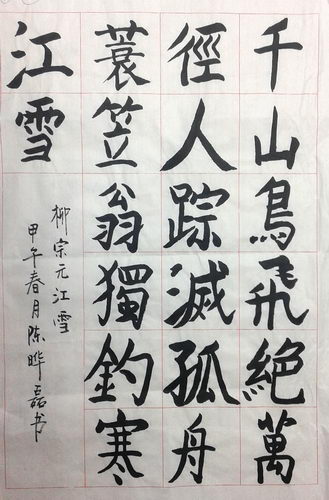 千山鳥飛絕萬
徑人踪滅孤舟
蓑笠翁獨釣寒
江雪
柳宗元江雪
甲午春月陈晔磊书